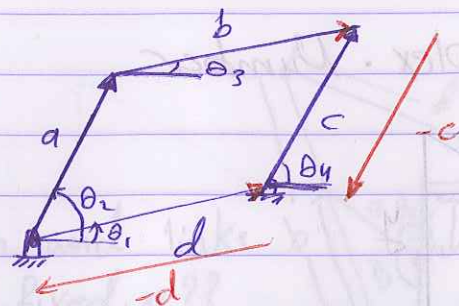 b
θ3
a
c
-c
θ2
θ4
θ1
d
-d